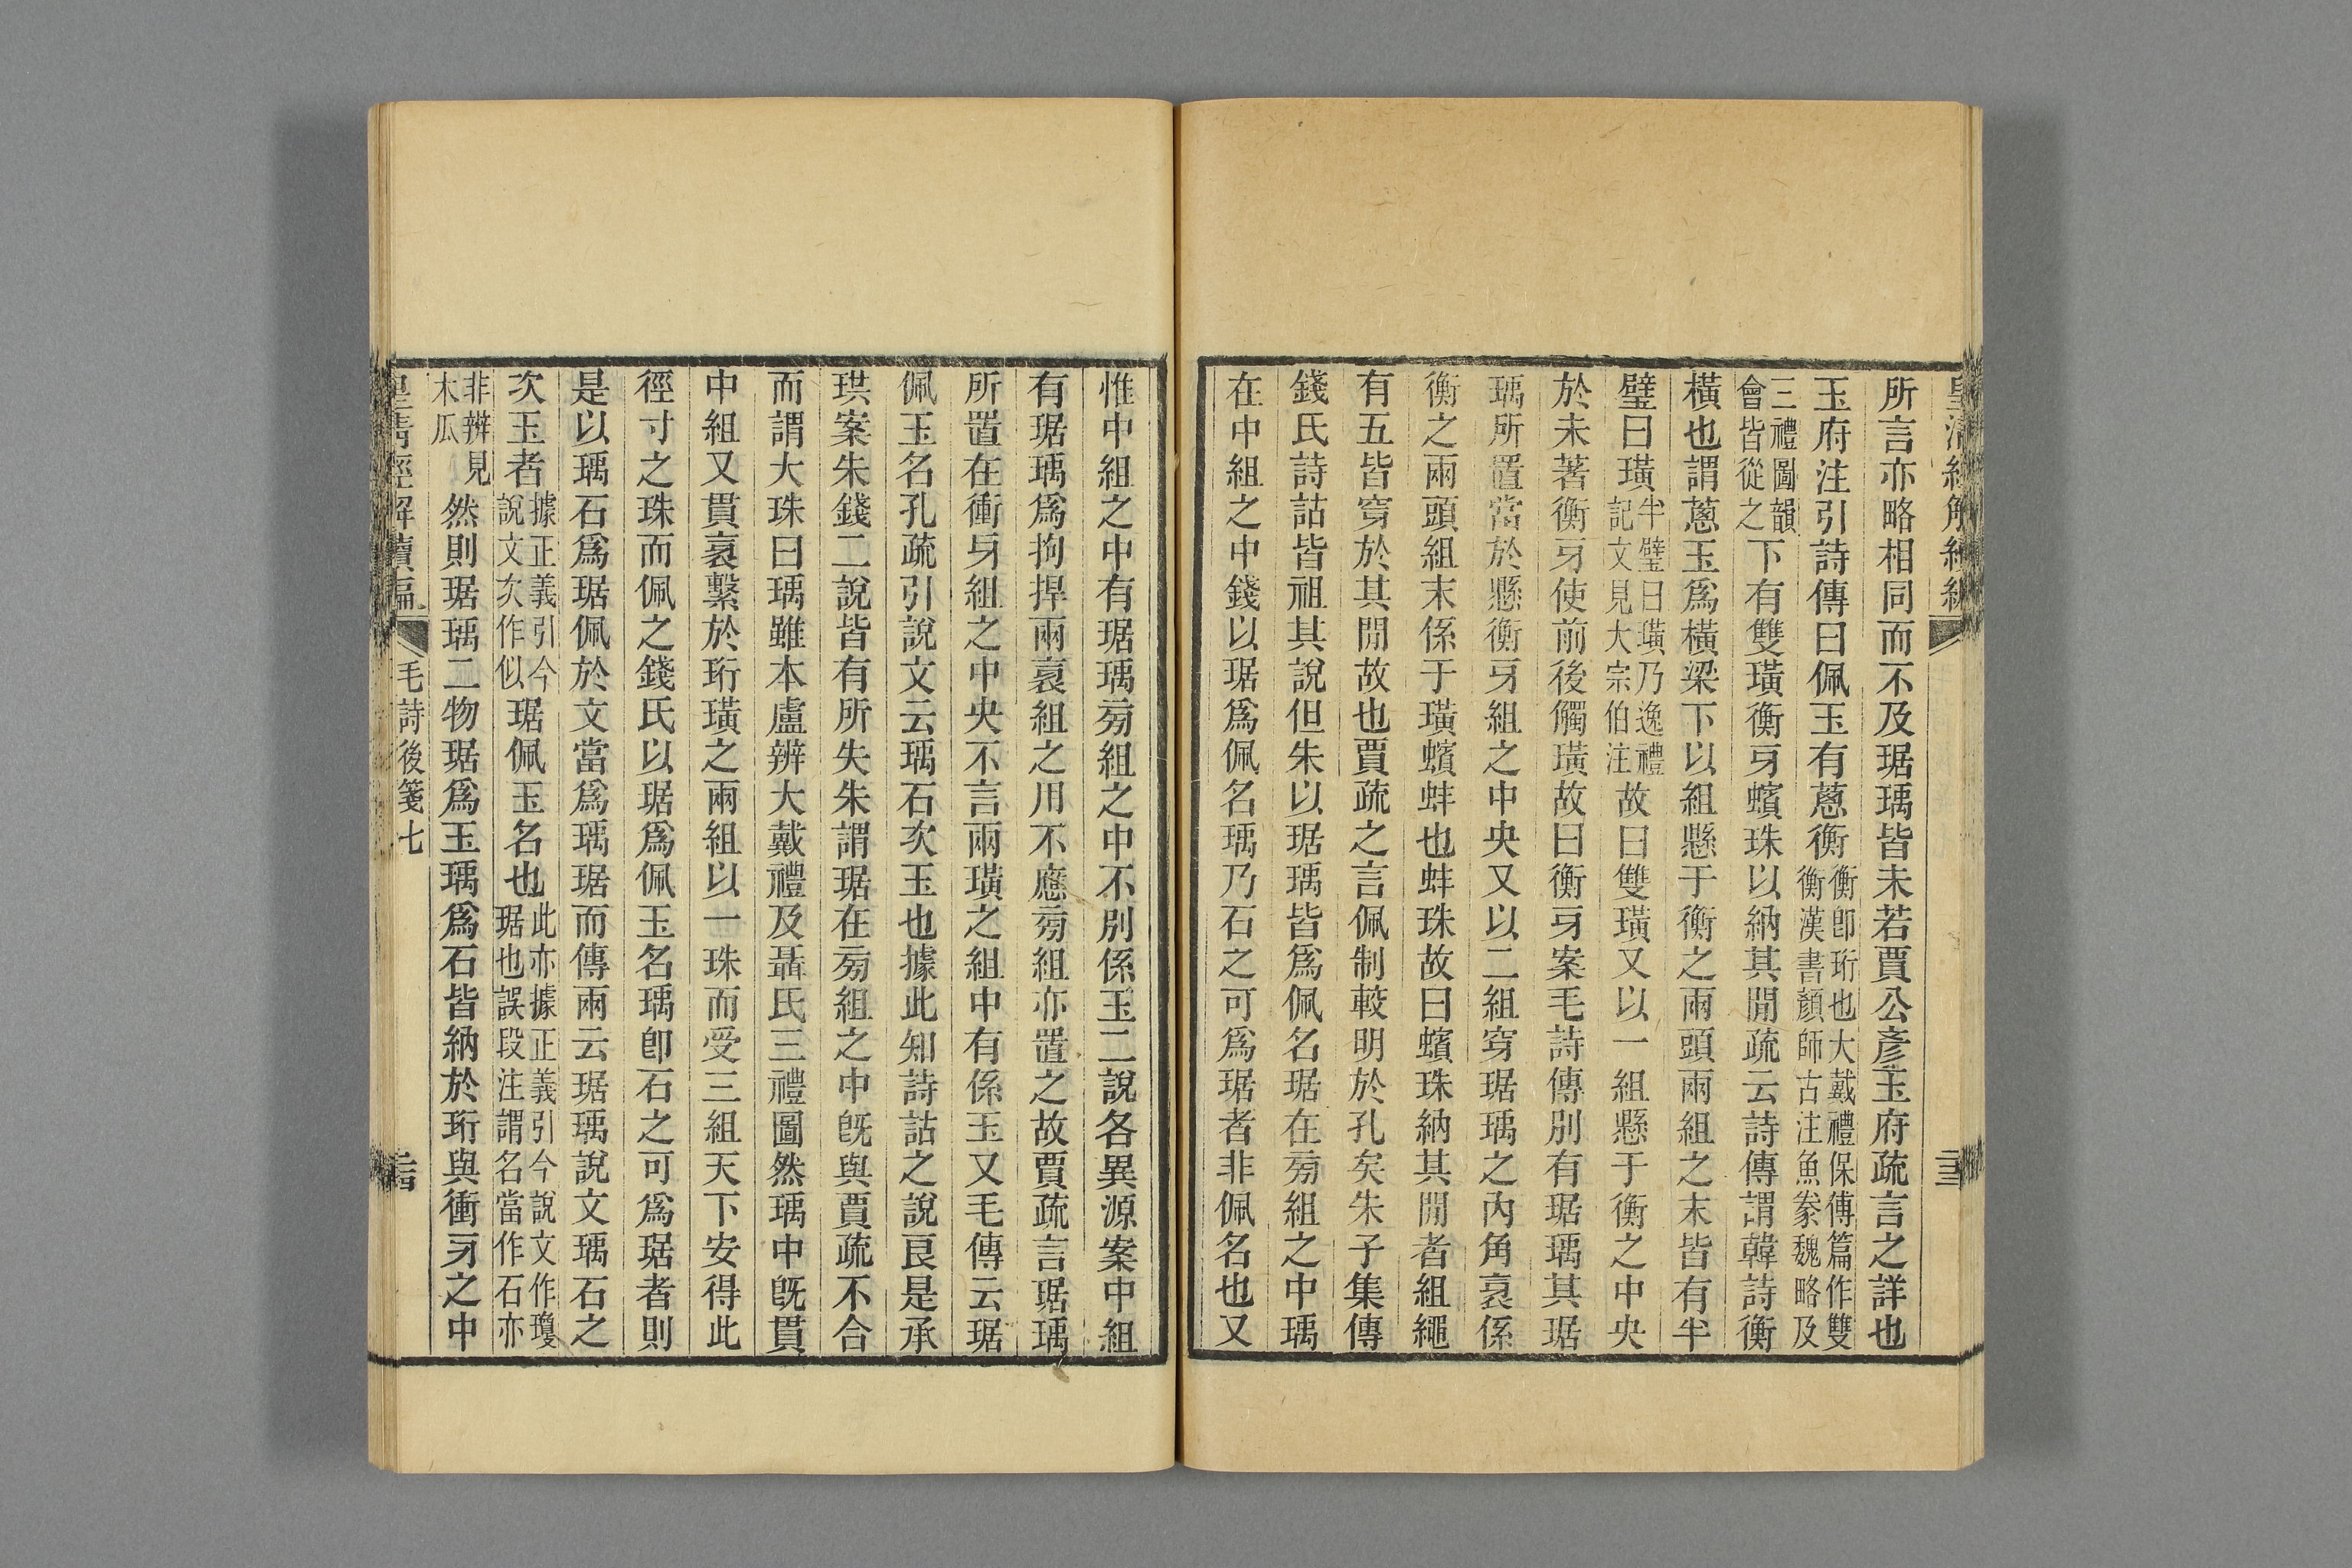 所言亦略相同而不及琚瑀皆未若賈公彥玉府疏言之詳也
玉府注引詩傳曰佩玉有蔥衡衡卽珩也大戴禮保傅篇作雙衡漢書顏師古注魚豢魏略及
三禮圖韻會皆從之下有雙璜衡牙蠙珠以納其閒疏云詩傳謂韓詩衡
橫也謂蔥玉爲橫梁下以組懸于衡之兩頭兩組之末皆有半
璧曰璜半璧曰璜乃逸禮記文見大宗伯注故曰雙璜又以一組懸于衡之中央
於末著衡牙使前後觸璜故曰衡牙案毛詩傳別有琚瑀其琚
瑀所置當於懸衡牙組之中央又以二組穿琚瑀之內角衺係
衡之兩頭組末係于璜蠙蚌也蚌珠故曰蠙珠納其閒者組繩
有五皆穿於其閒故也賈疏之言佩制較明於孔矣朱子集傳
錢氏詩詁皆祖其說但朱以琚瑀皆爲佩名琚在旁組之中瑀
在中組之中錢以琚爲佩名瑀乃石之可爲琚者非佩名也又
惟中組之中有琚瑀旁組之中不別係玉二說各異源案中組
有琚瑀爲拘捍兩衺組之用不應旁組亦置之故賈疏言琚瑀
所置在衝牙組之中央不言兩璜之組中有係玉又毛傳云琚
佩玉名孔疏引說文云瑀石次玉也據此知詩詁之說良是承
珙案朱錢二說皆有所失朱謂琚在旁組之中旣與賈疏不合
而謂大珠曰瑀雖本盧辨大戴禮及聶氏三禮圖然瑀中旣貫
中組又貫衺繫於珩璜之兩組以一珠而受三組天下安得此
徑寸之珠而佩之錢氏以琚爲佩玉名瑀卽石之可爲琚者則
是以瑀石爲琚佩於文當爲瑀琚而傳兩云琚瑀說文瑀石之
次玉者據正義引今說文次作似琚佩玉名也此亦據正義引今說文作瓊琚也誤段注謂名當作石亦
非辨見木瓜然則琚瑀二物琚爲玉瑀爲石皆納於珩與衝牙之中
毛詩後箋七